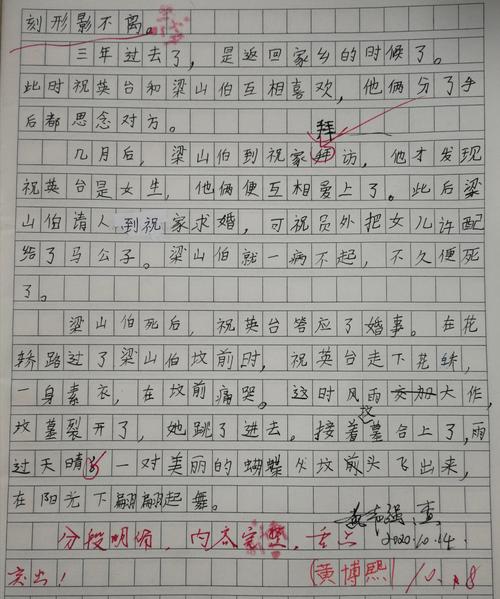 刻形影不离。
三年过去了，是返回家乡的时候了。
此时祝英台和梁山伯互相喜欢，他俩分了手
后都思念对方。
拜
几月后，梁山伯到祝家拜访，他才发现
祝英台是女生，他俩便互相爱上了。此后梁
山伯请人到祝家求婚，可祝员外把女儿许配
给了马公子。梁山伯就一病不起，不久便死
了。
梁山伯死后，祝英台答应了婚事。在花
轿路过了梁山伯坟前时，祝英台走下花轿，
一身素衣，在坟前痛哭。这时风雨交加大作，
坟墓裂开了，她跳了进去。接着坟墓合上了，雨
过天晴了一对美丽的蝴蝶从坟前头飞出来，
在阳光下翩翩起舞。
查
2020.10.14.
分段明晰，内容完整，重点
突出！
(黄博熙) 10.18